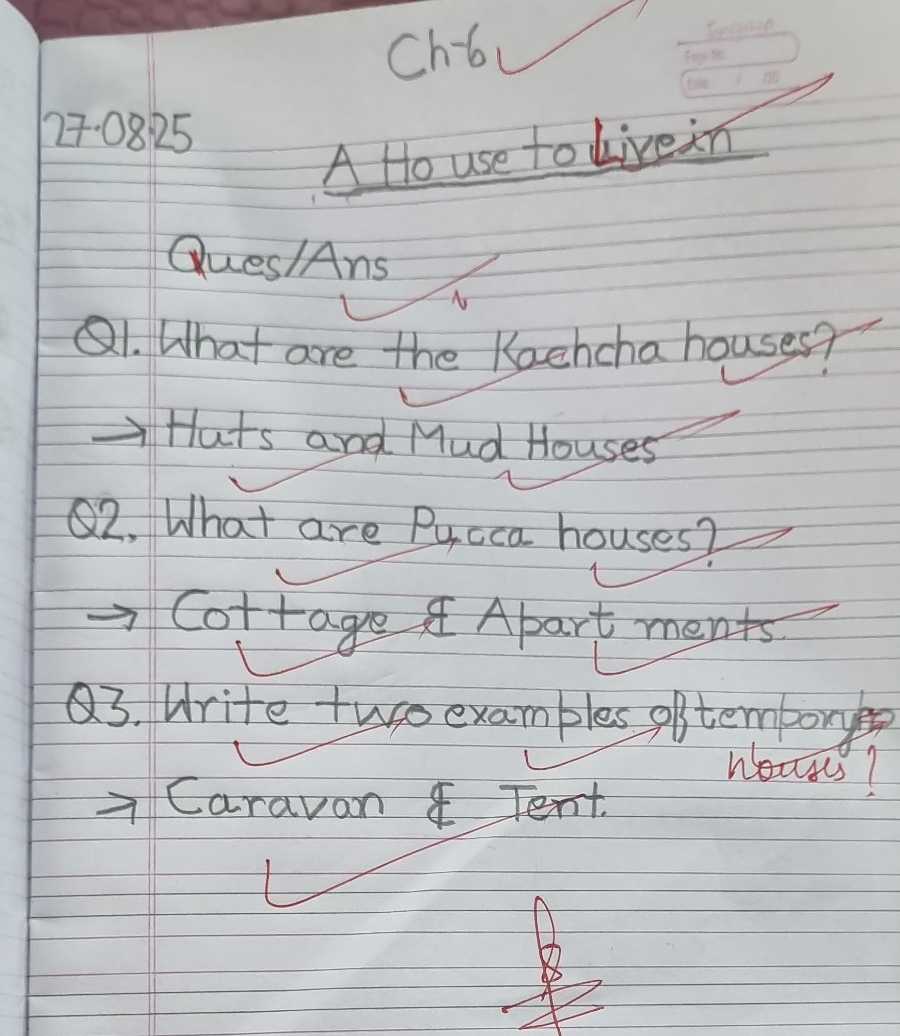 Ch-6
27.08.25
A House to Live in
Ques/Ans
Q1. What are the Kachcha houses?
→ Huts and Mud Houses
Q2. What are Pucca houses?
→ Cottage & Apartments.
Q3. Write two examples of tempory
houses?
→ Caravan & Tent.